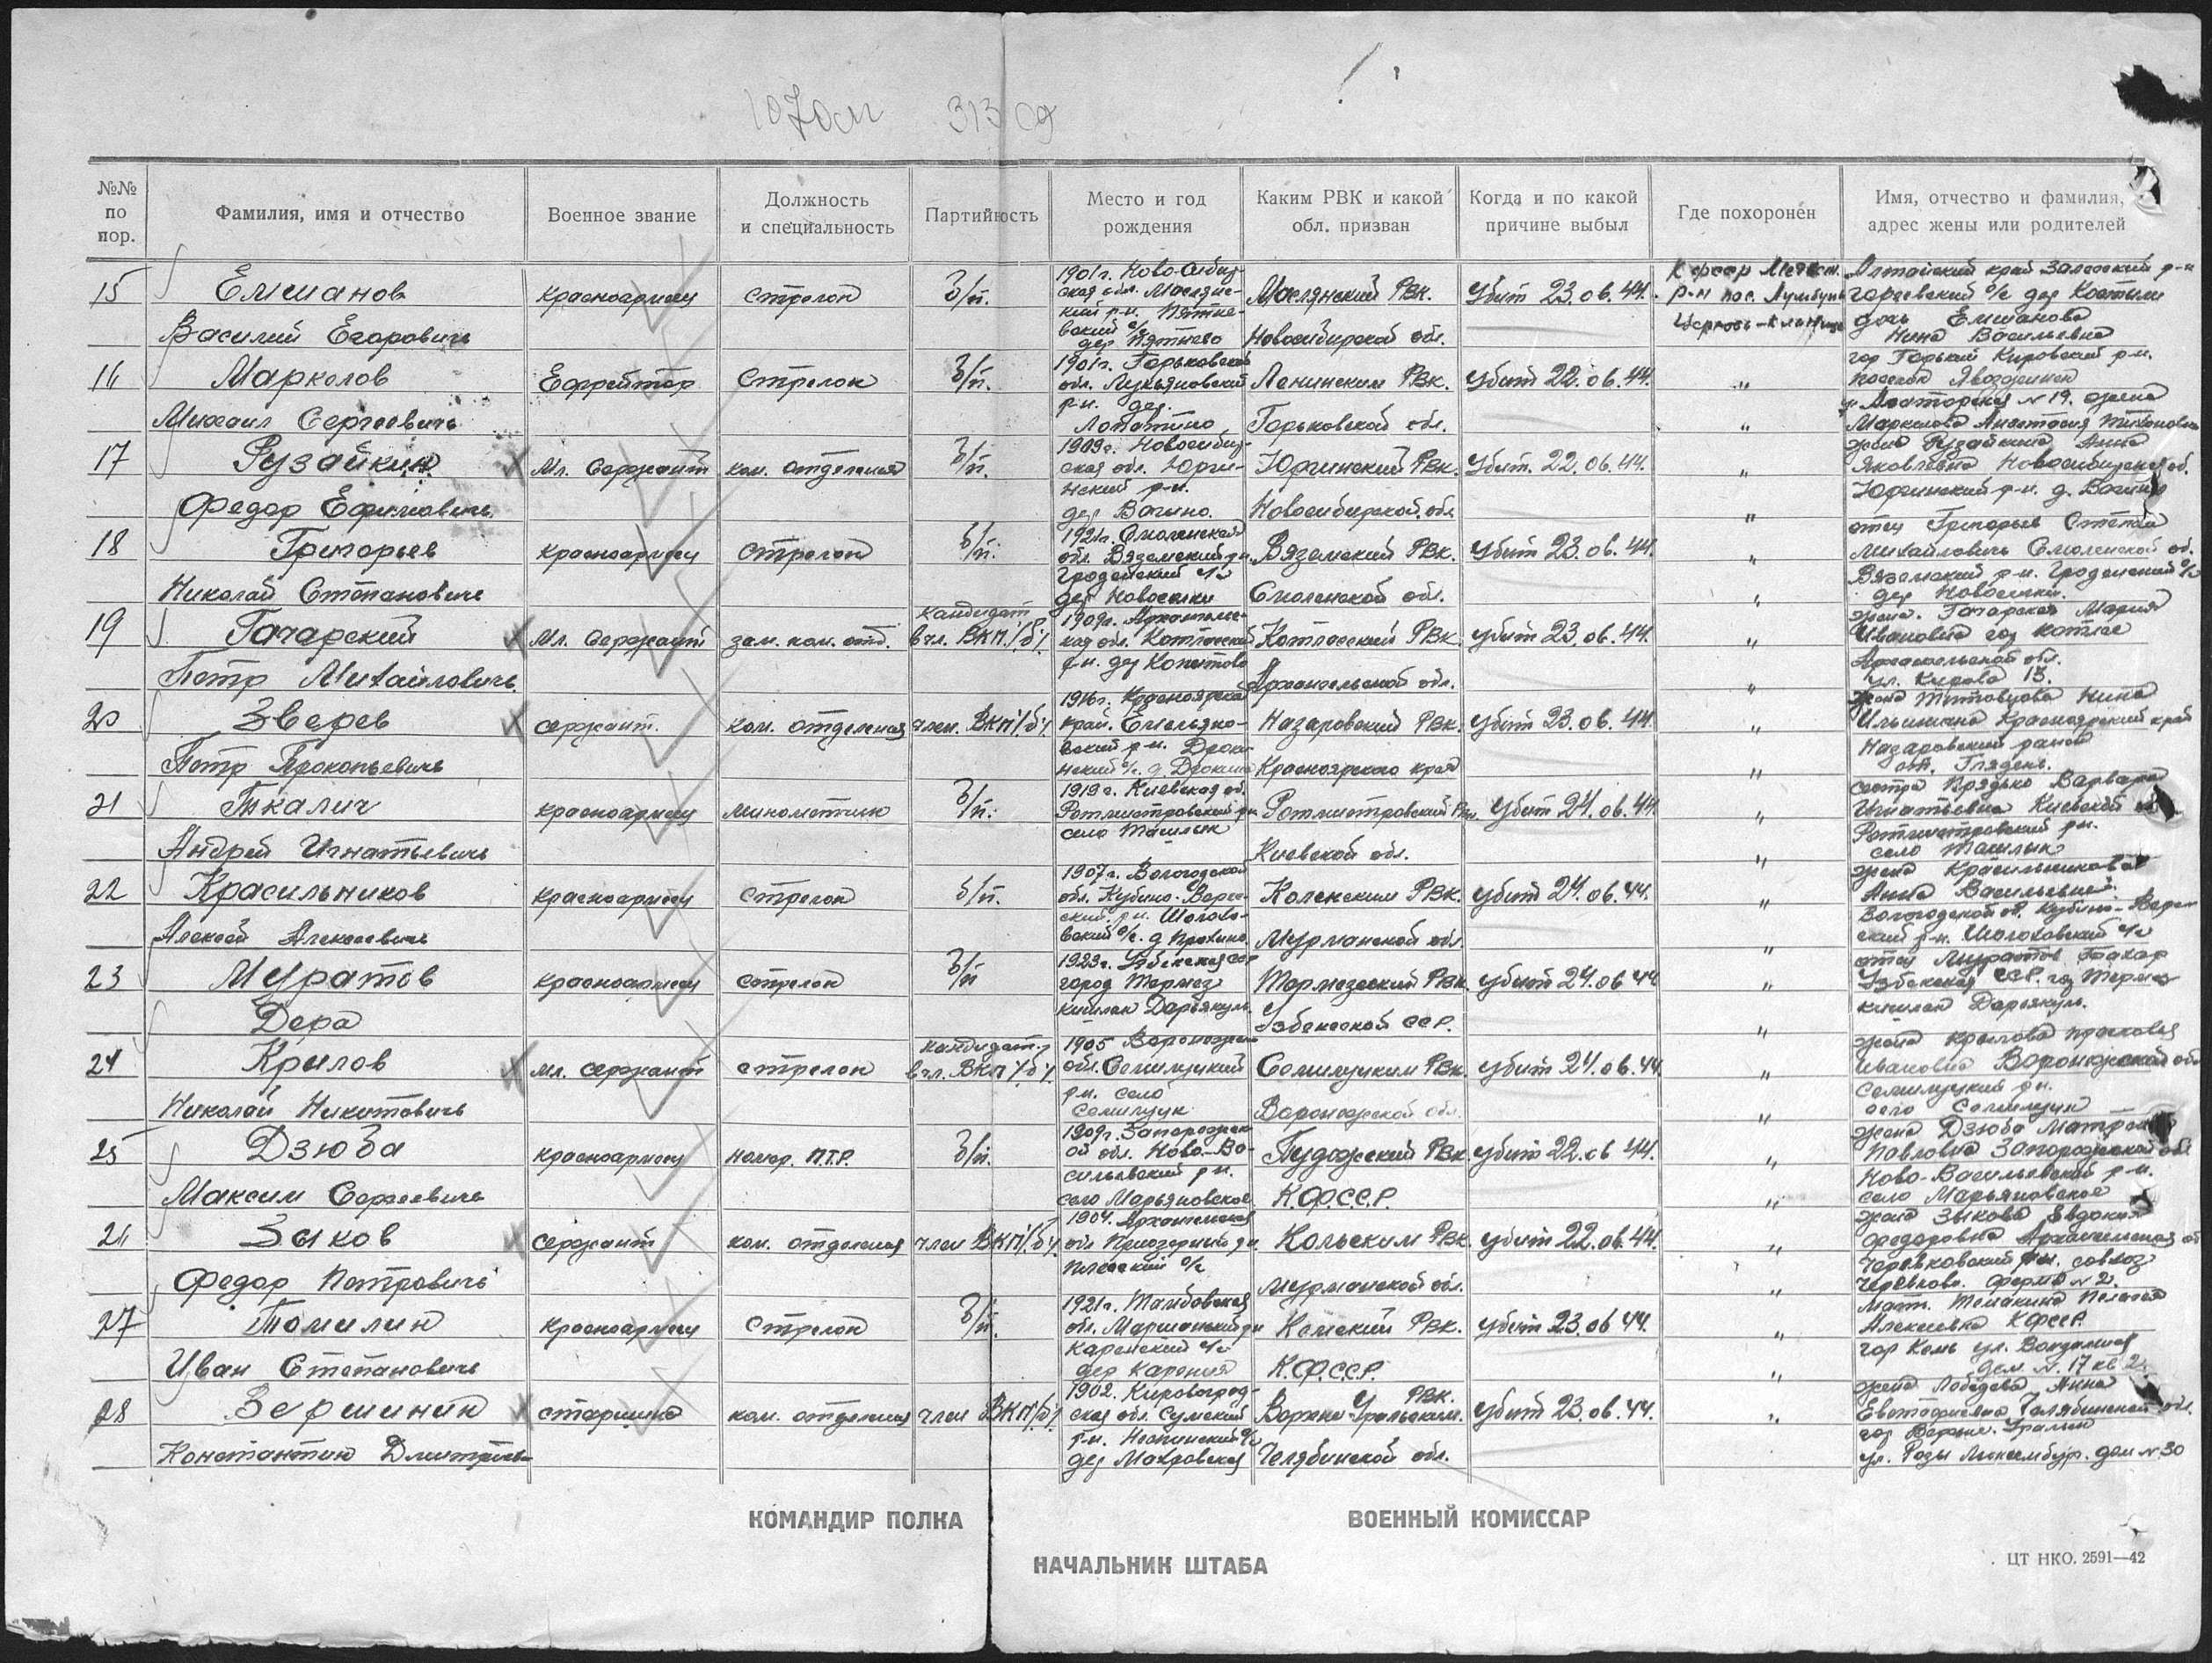 1070 сп 313 сд
№№ по пор.
Фамилия, имя и отчество
Военное звание
Должность и специальность
Партийность
Место и год рождения
Каким РВК и какой обл. призван
Когда и по какой причине выбыл
Где похоронен
Имя, отчество и фамилия, адрес жены или родителей
15 Емшанов красноармеец стрелок б/п. 1901г. Ново-Сибир- Маслянский РВК. Убит 23.06.44. К.фсср Медвеж. Алтайский край Залесовский р-н
ская обл. Маслянс- р-н пос. с/с дер
кий р-н.
Василий Егорович дер Пятнево Новосибирской обл. дочь Емшанова
Нина Васильевна
16 Маркелов Ефрейтор Стрелок б/п. 1901г. Горьковская Ленинским РВК. Убит 22.06.44. " гор Горький Кировский р-н.
обл. Лукьяновский поселок
р-н. дер. № 19. жена
Михаил Сергеевич Лопатино Горьковской обл. " Маркелова Анастасия
17 Рузайкин Мл. Сержант ком. отделения б/п. 1909г. Новосибир- Юргинский РВК. Убит. 22.06.44. " жена Рузайкина Анна
ская обл. Юрги- Яковлевна Новосибирская об.
нский р-н. Юргинский р-н. д.
Федор Ефимович дер Новосибирской обл "
18 Григорьев красноармеец стрелок б/п. 1921г. Смоленская Вяземский РВК. Убит 23.06.44. " отец Григорьев Степан
обл. Вяземский р-н Михайлович Смоленской об.
с/с Вяземский р-н. с/с
Николай Степанович дер Новоселки Смоленской обл. " дер Новоселки.
19 Гагарский Мл. Сержант зам. ком. отд. кандидат в чл. ВКП/б/. 1909г. Архангель- Котласский РВК. убит 23.06.44. " жена. Гагарская Мария
кая обл. Котласский Ивановна гор Котлас
р-н. дер Архангельской обл.
Петр Михайлович Архангельской обл. " ул. Кирова 13.
20 Зверев сержант. ком. отделения член. ВКП/б/. 1916г. Красноярский Назаровский РВК. Убит 23.06.44. " жена Титовцова Нина
край. Емельяно- Ильинична Красноярский край
вский р-н. Дрок- Назаровский район
Петр Прокопьевич нский с/с. д. Дрокино Красноярского края " ст. Глядень.
21 Ткалич красноармеец минометчик б/п. 1919г. Киевская об. Ротмистровский РВК. Убит 24.06.44. " сестра Варвара
Ротмистровский р-н Игнатьевна Киевской
село Ташлык Ротмистровский р-н.
Андрей Игнатьевич Киевской обл. " село Ташлык
22 Красильников красноармеец стрелок б/п. 1907г. Вологодской убит 24.06.44. " жена Красильникова
обл. Кубино-Озерс- РВК. Анна Васильевна
ский р-н. Вологодской об.
Алексей Алексеевич вский с/с. д. Мурманской обл. " ский р-н. с/с
23 Муратов красноармеец стрелок б/п 1923г. Узбекская ССР Термезский РВК. убит 24.06.44 " отец Муратов
город Термез Узбекская ССР. гор Термез
кишлак Дарьякуль. кишлак Дарьякуль.
Дера Узбекской ССР. "
24 Крылов мл. сержант стрелок кандидат в чл. ВКП/б/. 1905 Воронежск. Семилуцким РВК. убит 24.06.44. " жена Крылова Прасковья
обл. Семилуцкий Ивановна Воронежской обл
р-н. село Семилуцкий р-н.
Николай Никитович Семилуки Воронежской обл. " село Семилуки
25 Дзюба красноармеец номер. П.Т.Р. б/п. 1909г. Запорожск- Пудожский РВК убит 22.06 44. " жена Дзюба Матрена
ой обл. Ново-Ва- Павловна Запорожской обл
сильевский р-н. Ново-Васильевский р-н.
Максим Сергеевич село Марьяновское К.Ф.С.С.Р. " село Марьяновское
26 Зыков сержант ком. отделения член ВКП/б/. 1904. Архангельская Кольским РВК убит 22.06.44. " жена Зыкова Евдокия
обл Приозерный р-н. Федоровна Архангельская об
с/с Черевковский р-н. совхоз
Федор Петрович Мурманской обл. " Черевково. ферма № 2.
27 Томилин красноармеец Стрелок б/п. 1921г. Тамбовская Кемский РВК. убит 23.06 44. " мать. Пелагея
обл. Моршанский р-н Алексеевна КФССР.
с/с гор Кемь ул.
Иван Степанович дер К.Ф.С.С.Р. " дом. №. 17 кв 2.
28 Вершинин старшина ком. отделения член ВКП/б/. 1902. Кировоград- Верхне-Уральским. РВК. убит 23.06.44. " жена Лебедева Анна
ская обл. Сумский Челябинской обл.
р-н. с/с гор Верхне. Уральск
Константин Дмитриев дер Макровская Челябинской обл. ул. Розы Люксембур. дом № 30
КОМАНДИР ПОЛКА
ВОЕННЫЙ КОМИССАР
НАЧАЛЬНИК ШТАБА
ЦТ НКО. 2591—42